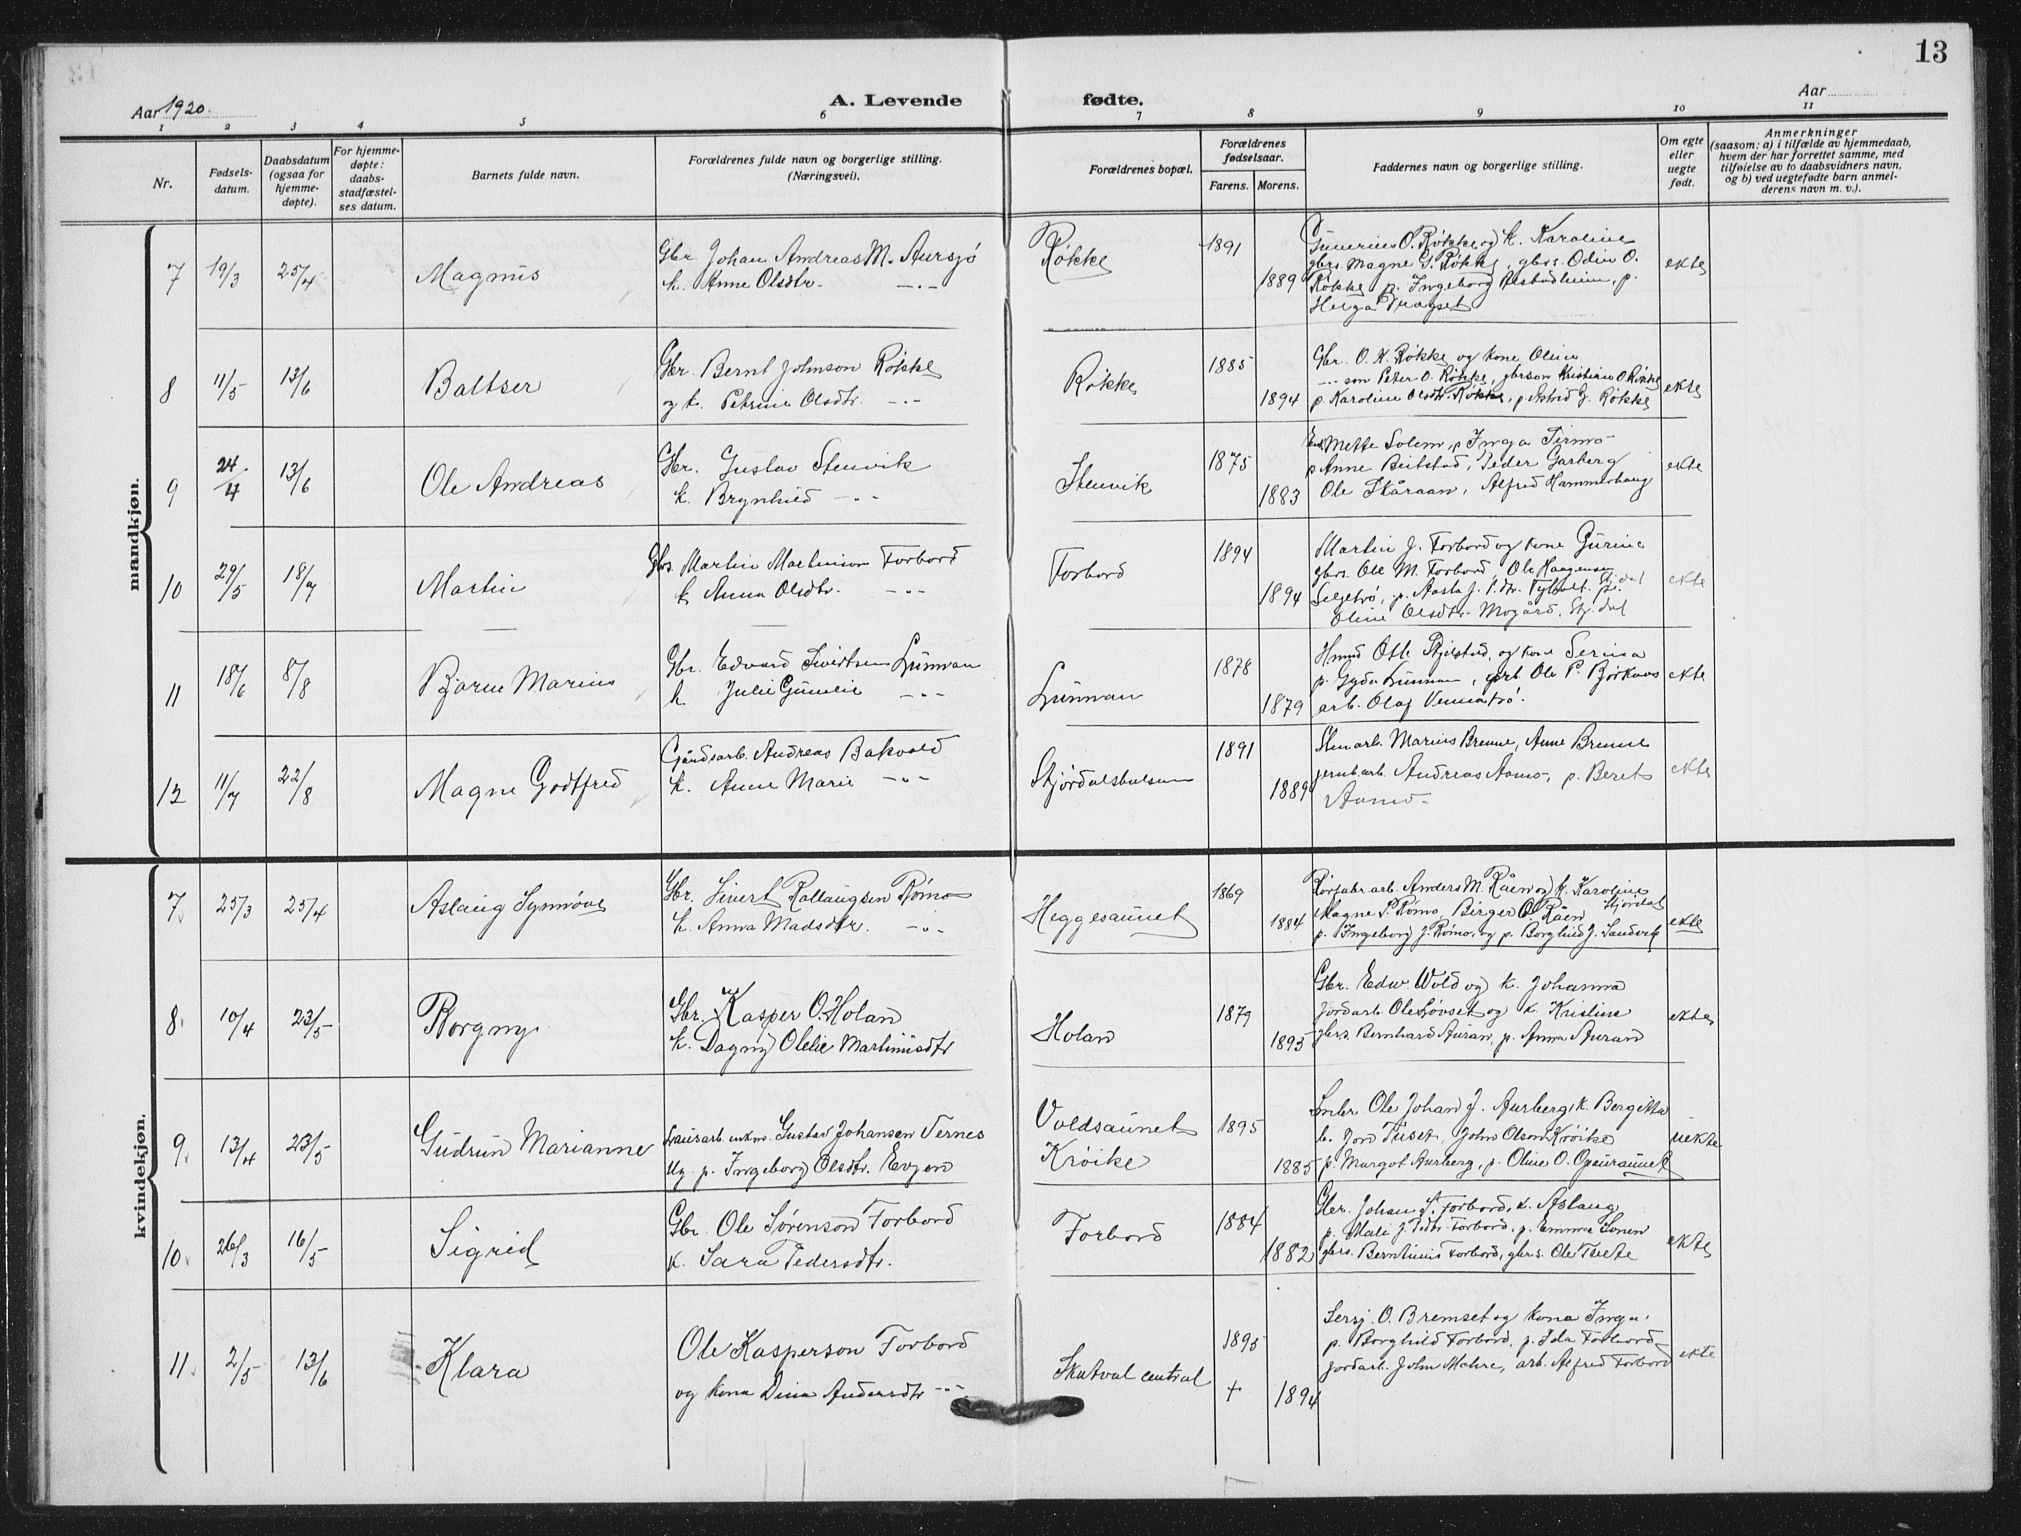 13
Aar 1920.
A. Levende fødte.
Aar
1 2 3 4 5 6 7 8 9 10 11
Nr.
Fødsels-
datum.
Daabsdatum
(ogsaa for
hjemme-
døpte).
For hjemme-
døpte:
daabs-
stadfæstel-
ses datum.
Barnets fulde navn.
Forældrenes fulde navn og borgerlige stilling.
(Næringsvei).
Forældrenes bopæl.
Forældrenes
fødselsaar.
Farens. Morens.
Faddernes navn og borgerlige stilling.
Om egte
eller
uegte
født.
Anmerkninger
(saasom: a) i tilfælde av hjemmedaab,
hvem der har forrettet samme, med
tilføielse av to daabsvidners navn,
og b) ved uegtefødte barn anmel-
derens navn m. v.).
mandkjøn.
7 19/3 25/4 Magnus
Gbr. Johan Andreas M. Aursjø
k. Anne Olsdtr. -"-
Røkke
1891
1889
O. Røkke og k. Karoline
gbrs. Magne G. Røkke, gbrs. Odin O.
Røkke p. Ingeborg p.
Helga
ekte
8 11/5 13/6 Baltser
Gbr. Bernt Johnson Røkke
og k. Petrine Olsdtr. -"-
Røkke
1885
1894
Gbr. O. K. Røkke og kone Oline
-"- son Peter O. Røkke, gbrson Kristian O. Røkke
p. Karoline Olsdtr. Røkke, p. Astrid G. Røkke
ekte
9 24/4 13/6 Ole Andreas
Gbr. Gustav Stenvik
k. Brynhild -"-
Stenvik
1875
1883
Mette Solem, p. Inga Tirmo
p. Anne Beitstad, Peder Garberg
Ole Skåraan, Alfred Hammerhaug
ekte
10 29/5 18/7 Martin
Gbs. Martin Martinson Forbord
k. Anna Olsdtr. -"-
Forbord
1894
1894
Martin J. Forbord og kone Gurine
gbrs. Ole M. Forbord, Ole Haagensen
Selgetrø, p. Aasta J. p.
Oline Olsdtr. Mogård. Stj.dal
ekte
11 18/6 8/8 Bjarne Marius
Gbr. Edvard Sivertsen Lunnan
k. Julie Gunelie -"-
Lunnan
1878
1879
Hmnd Otto og kone Serina
p. Gyda Lunnan, Ole P. Bjørkaas
arb. Olaf
ekte
12 11/7 22/8 Magne Godtfred
Gaardsarb. Andreas Bakvold
k. Anne Marie -"-
Stjørdalshalsen
1891
1889
Stenarb. Marius Brenne, Anne Brenne
jernb.arb. Andreas Aamo, p. Beret
Aamo
ekte
kvindekjøn.
7 25/3 25/4 Aslaug Synnøve
Gbr. Sivert Rollaugsen Rømo
k. Anna Madsdtr. -"-
Heggesaunet
1869
1884
Anders M. Råen og k. Karoline
Stjørdal
Magne S. Rømo, Birger O. Råen
p. Ingeborg J. Rømo, og p. Borghild J. Sandvik
ekte
8 10/4 23/5 Borgny
Gbr. Kasper O. Holan
k. Dagny Olelie Martinusdtr
Holan
1879
1895
Gbr. Edw. Wold og k. Johanna
jordarb. Ole Løvset og k. Kristine
gbrs. Bernhard Auran, p. Anna Auran
ekte
9 13/4 23/5 Gudrun Marianne
unkm. Gustav Johansen Vernes
Ug. p. Ingeborg Olsdtr. Evjen
Voldsaunet
Krøike
1895
1885
Smbr Ole Johan J. Aurberg, k. Bergitta
Jon Tuset, John Olson Krøike
p. Margot Aurberg, p. Oline O.
uekte
10 26/3 16/5 Sigrid
Gbr. Ole Sørenson Forbord
k. Sara Pedersdtr.
Forbord
1884
1882
Gbr. Johan S. Forbord, k. Aslaug
p. Mali J. Forbord, p. Emma
gbrs. Berntinus Forbord, gbrs. Ole
ekte
11 2/5 13/6 Klara
Ole Kasperson Forbord
og kona Dina Andersdtr -"-
Skatval central
1895
+ 1894
Sersj. O. Bremset og kona Inga
p. Borghild Forbord, p. Ida Forbord
jordarb. John Mehre, arb. Alfred Forbord
ekte